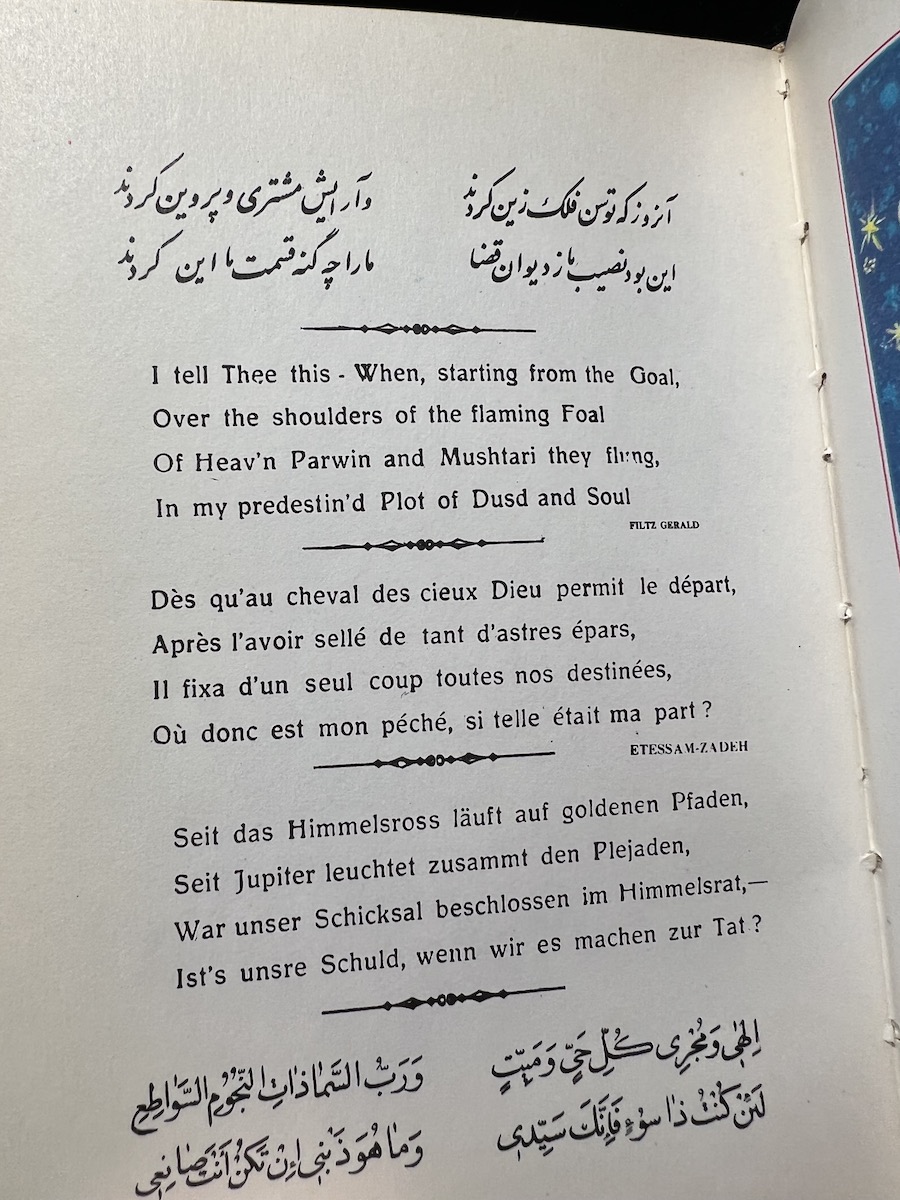 آنروز که توسن فلک زین کردند وآرایش مشتری و پروین کردند
این بود نصیب ما ز دیوان قضا ما را چه گنه قسمت ما این کردند
I tell Thee this - When, starting from the Goal,
Over the shoulders of the flaming Foal
Of Heav'n Parwin and Mushtari they flung,
In my predestin'd Plot of Dusd and Soul
FILTZ GERALD
Dès qu'au cheval des cieux Dieu permit le départ,
Après l'avoir sellé de tant d'astres épars,
Il fixa d'un seul coup toutes nos destinées,
Où donc est mon péché, si telle était ma part ?
ETESSAM-ZADEH
Seit das Himmelsross läuft auf goldenen Pfaden,
Seit Jupiter leuchtet zusammt den Plejaden,
War unser Schicksal beschlossen im Himmelsrat,—
Ist's unsre Schuld, wenn wir es machen zur Tat ?
اِلٰهِی وَمُجْرِی کُلِّ حَیٍّ وَمَیِّتٍ وَرَبَّ السَّمٰا ذٰاتِ النُّجُومِ السَّوٰاطِعِ
لَئِنْ کُنْتُ ذٰا سُوْءٍ فَاِنَّكَ سَیِّدِی وَمٰا هُوَ ذَنْبِی اِنْ تَکُنْ اَنْتَ صٰانِعِی